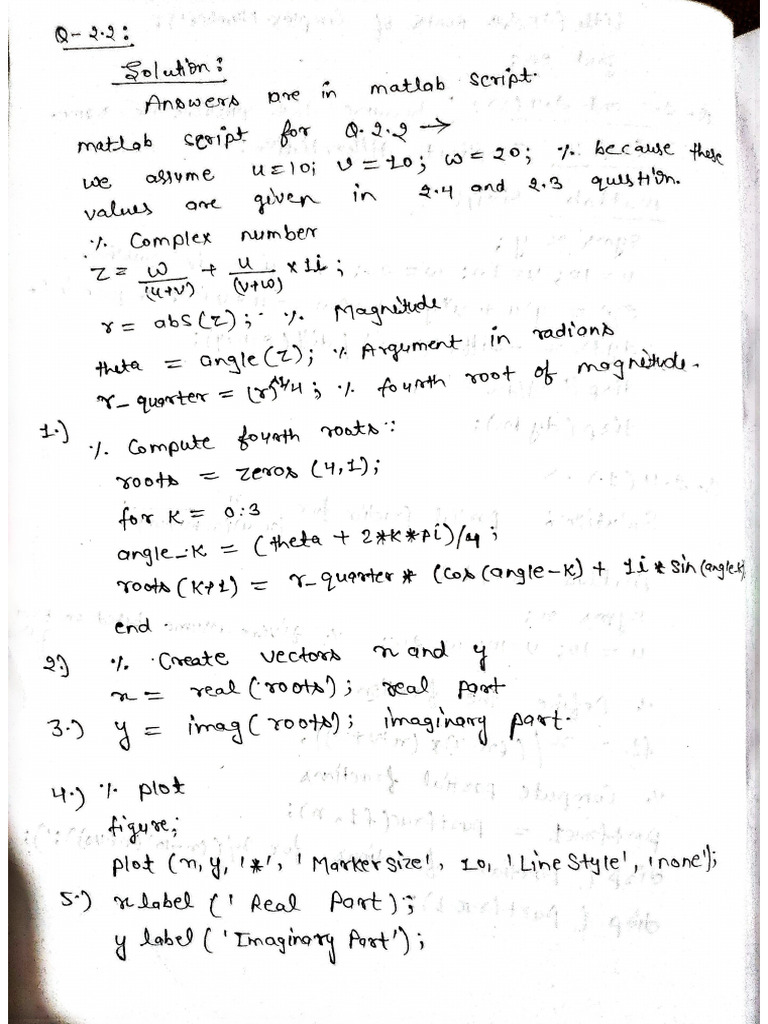 Q-2.2:
Solution:
Answers are in matlab script.
matlab script for Q.2.2 →
we assume u=10; v=10; w=20; % because these
values are given in 2.4 and 2.3 question.
% Complex number
z = w/(u+v) + u/(v+w) × 1i;
r = abs(z); % Magnitude
theta = angle(z); % Argument in radians
r_quarter = (r)^1/4; % fourth root of magnitude.
1.) % Compute fourth roots:
roots = zeros (4,1);
for K = 0:3
angle_K = (theta + 2*K*pi)/4;
roots(K+1) = r_quarter * (cos(angle-K) + 1i * sin(angle-K)
end
2.) % Create vectors x and y
x = real(roots); real part
3.) y = imag(roots); imaginary part.
4.) % plot
figure;
plot (x, y, '*', 'MarkerSize', 10, 'LineStyle', 'none');
5.) x label ('Real Part);
y label ('Imaginary Part');